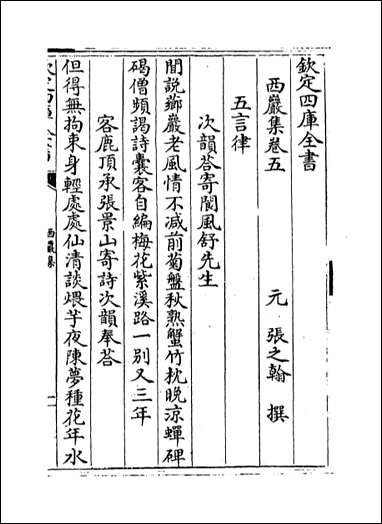 欽定四庫全書
西巖集卷五
元 張之翰 撰
五言律
次韻荅寄閬風舒先生
聞說薌巖老風情不減前菊盤秋熟蟹竹枕晚涼蟬碑
碣僧頻謁詩囊客自編梅花紫溪路一别又三年
客鹿頂承張景山寄詩次韻奉荅
但得無拘束身輕處處仙清談煨芋夜陳夢種花年水
西巖集
一